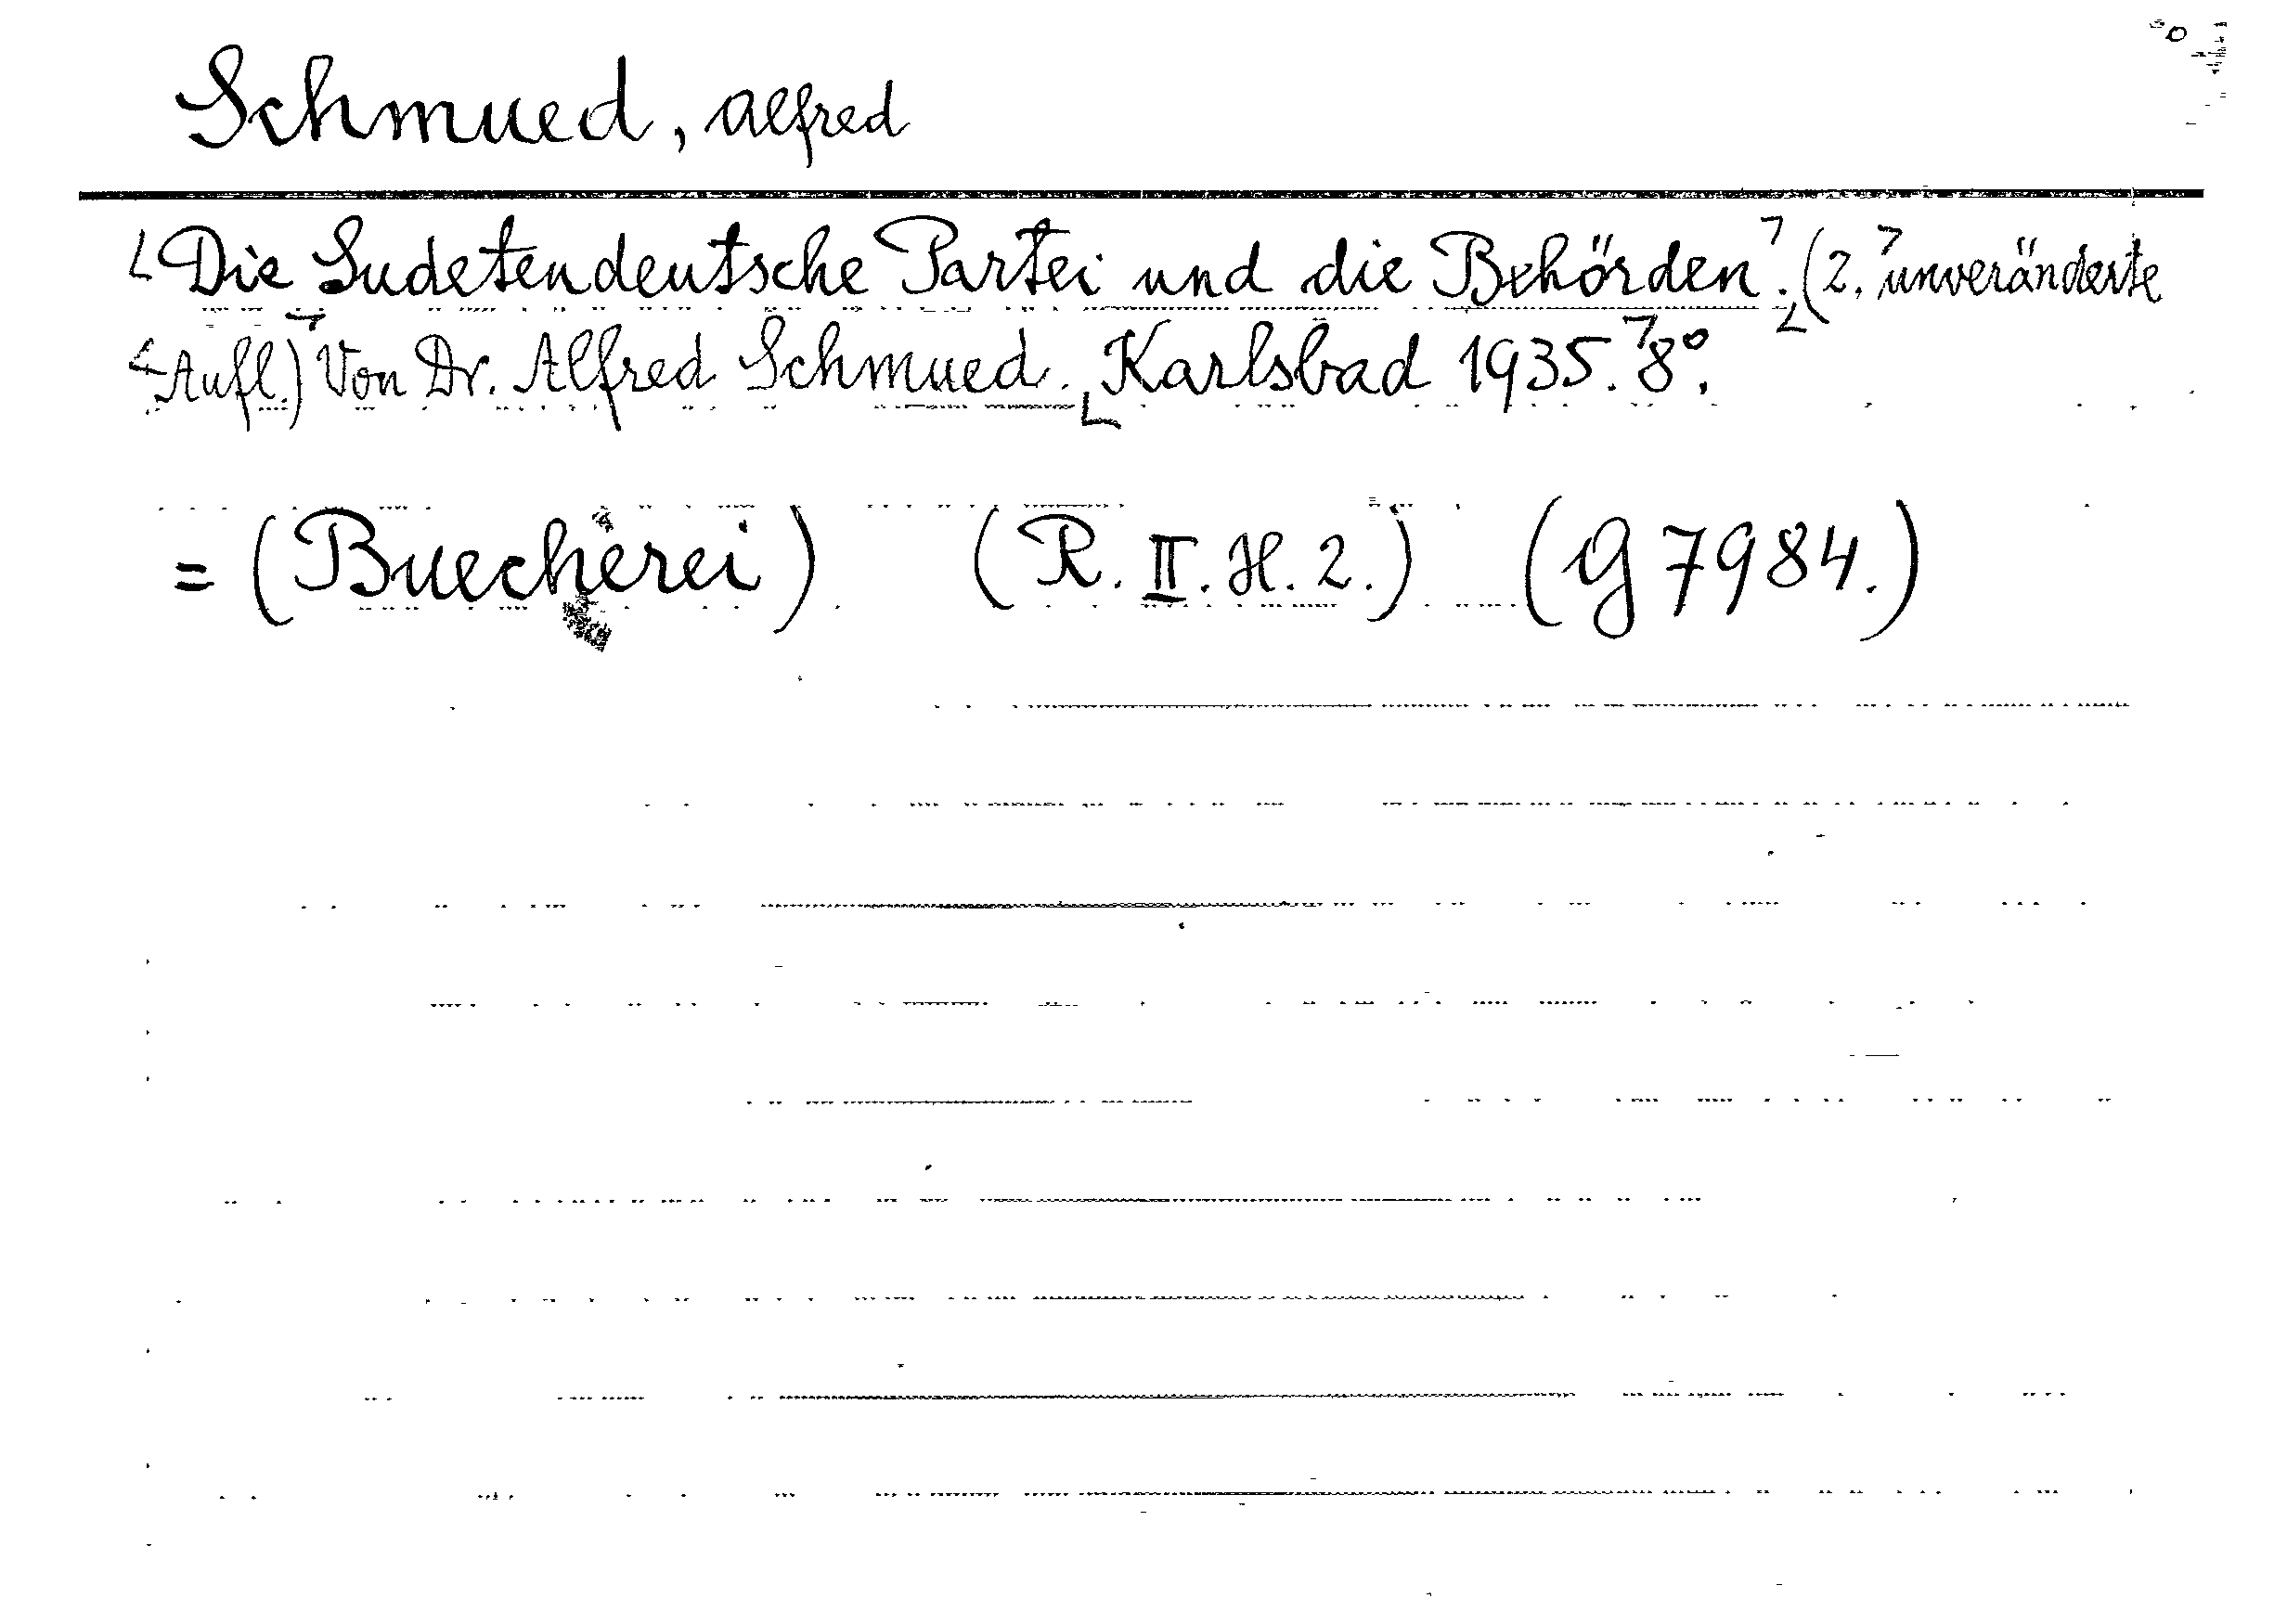 Schmued, Alfred
Die Sudetendeutsche Partei und die Behörden. (2. unveränderte
Aufl.) Von Dr. Alfred Schmued. Karlsbad 1935. 8°.
= (Buecherei) (R. II. H. 2.) (G 7984.)